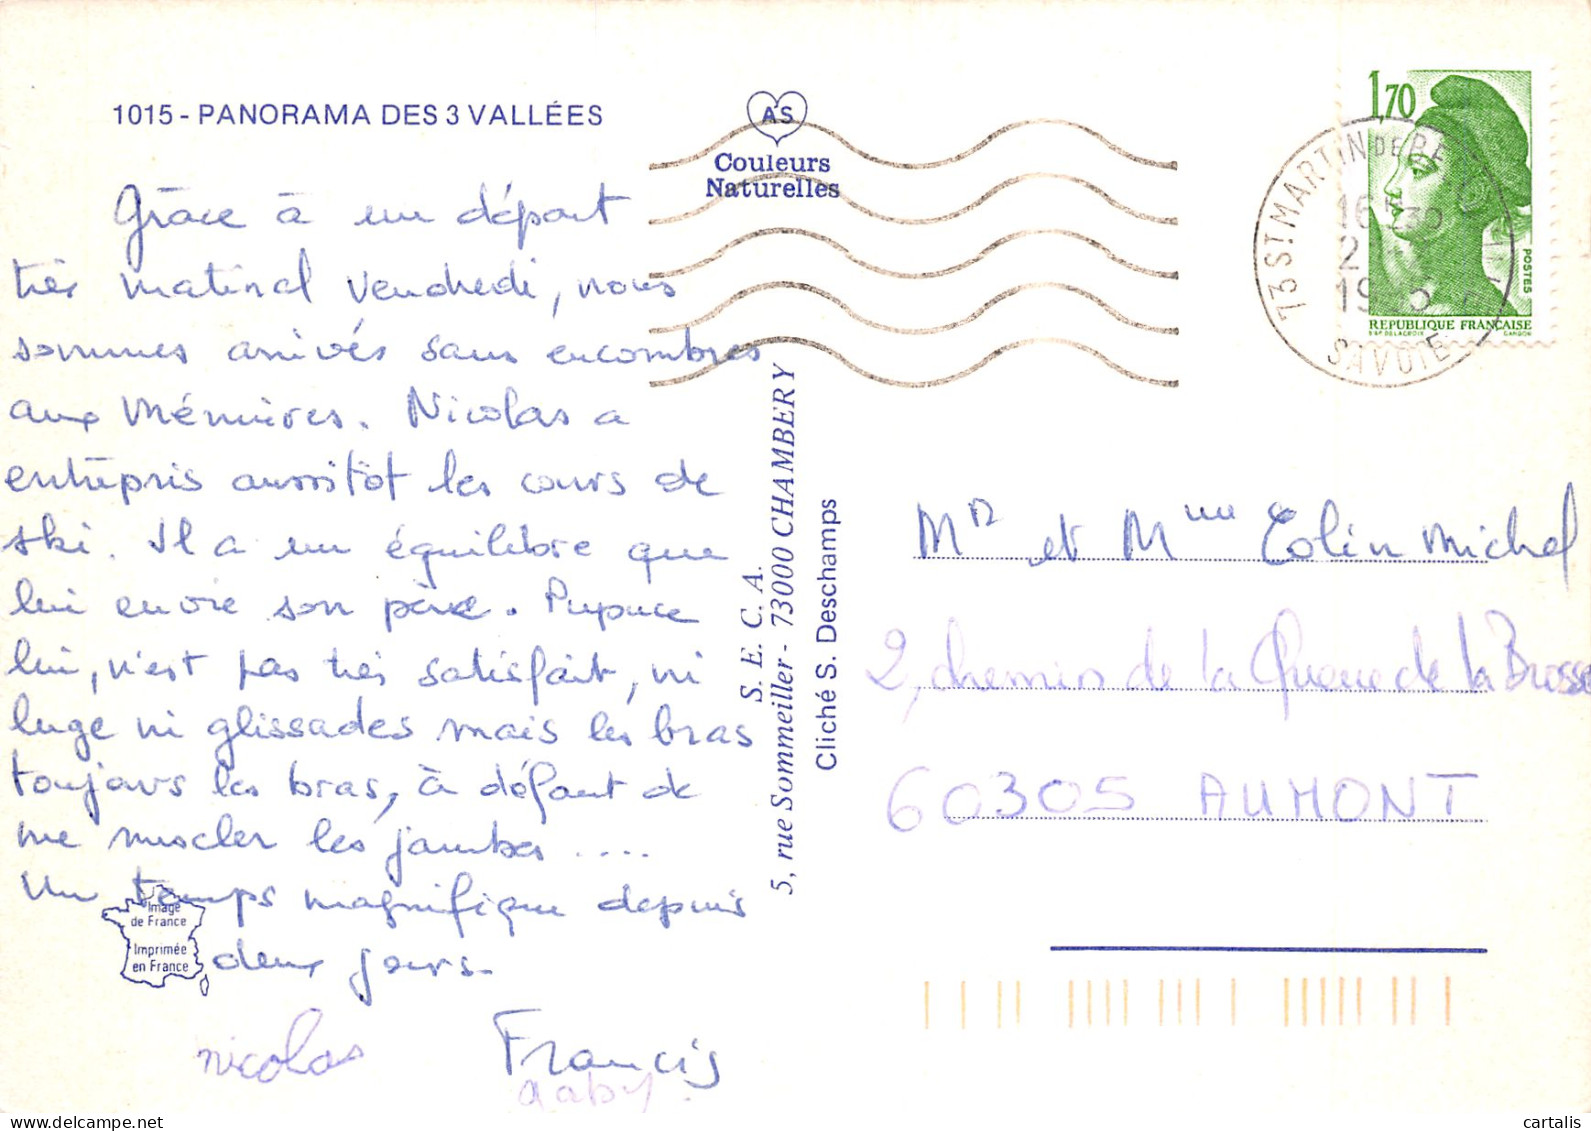 1015 - PANORAMA DES 3 VALLÉES
A S
Couleurs
Naturelles
Grâce à un départ
très matinal vendredi, nous
sommes arrivés sans encombres
aux Ménuires. Nicolas a
entrepris aussitôt les cours de
ski. Il a un équilibre que
lui envie son père. Pupuce
lui, n'est pas très satisfait, ni
luge ni glissades mais les bras
toujours les bras, à défaut de
me muscler les jambes ....
Un temps magnifique depuis
deux jours.
nicolas Francis
gaby.
Image
de France
Imprimée
en France
S. E. C. A.
5, rue Sommeiller - 73000 CHAMBERY
Cliché S. Deschamps
1,70
POSTES
REPUBLIQUE FRANÇAISE
D'AP. DELACROIX GANDON
73 ST MARTIN DE BE
16
2
19
SAVOIE
Mr et Mme Colin Michel
2, chemin de la Queue de la Brosse
60305 AUMONT
cartalis